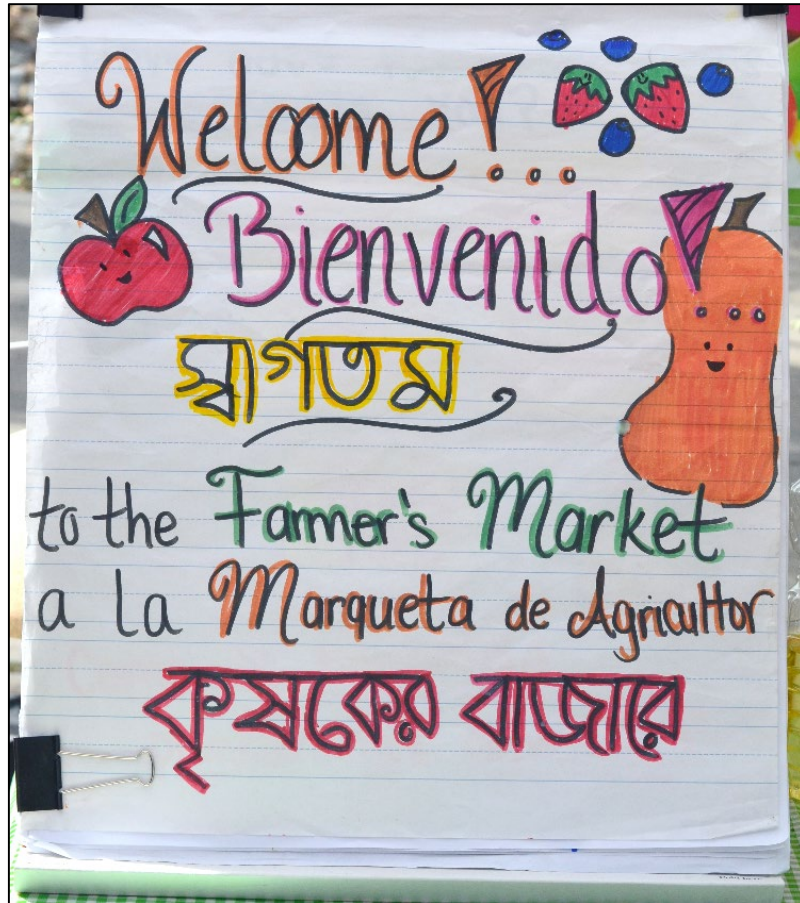 Welcome!...
Bienvenido!
স্বাগতম
to the Farmer's Market
a la Marqueta de Agricultor
কৃষকের বাজারে